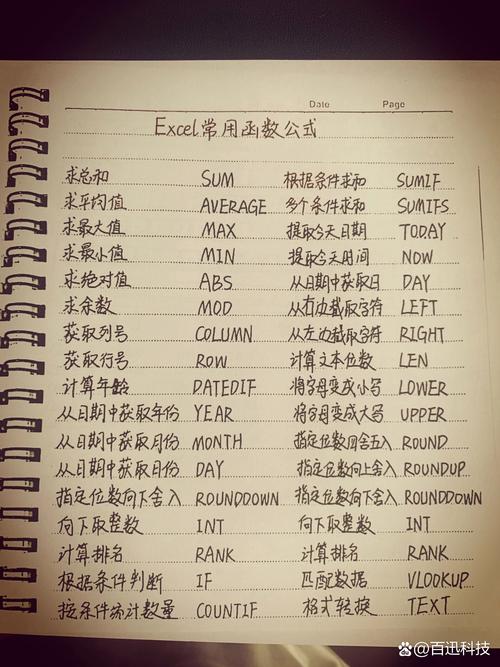 Date Page
Excel常用函数公式
求总和 SUM 根据条件求和 SUMIF
求平均值 AVERAGE 多个条件求和 SUMIFS
求最大值 MAX 提取今天日期 TODAY
求最小值 MIN 提取今天时间 NOW
求绝对值 ABS 从日期中获取日 DAY
求余数 MOD 从右边截取字符 LEFT
获取列号 COLUMN 从左边截取字符 RIGHT
获取行号 ROW 计算文本位数 LEN
计算年龄 DATEDIF 将字母变成小写 LOWER
从日期中获取年份 YEAR 将字母变成大写 UPPER
从日期中获取月份 MONTH 指定位数四舍五入 ROUND
从日期中获取月份 DAY 指定位数向上舍入 ROUNDUP
指定位数向下舍入 ROUNDDOWN 指定位数向下舍入 ROUNDDOWN
向下取整数 INT 向下取整数 INT
计算排名 RANK 计算排名 RANK
根据条件判断 IF 匹配数据 VLOOKUP
按条件统计数量 COUNTIF 格式转换 TEXT
百迅科技